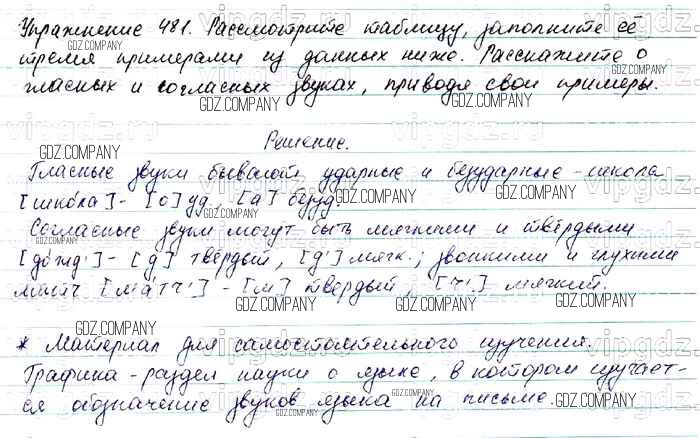 Упражнение 481. Рассмотрите таблицу, заполните её
тремя примерами из данных ниже. Расскажите о
гласных и согласных звуках, приводя свои примеры.
Решение.
Гласные звуки бывают ударные и безударные - школа
[шко́ла] - [о] уд., [а] безуд.
Согласные звуки могут быть мягкими и твёрдыми
[до́жд'] - [д] твёрдый, [д'] мягк.; звонкими и глухими
матч [матч'] - [м] твёрдый, [ч'] мягкий.
* Материал для самостоятельного изучения.
Графика - раздел науки о языке, в котором изучает-
ся обозначение звуков языка на письме.
GDZ.COMPANY
vipgdz.ru